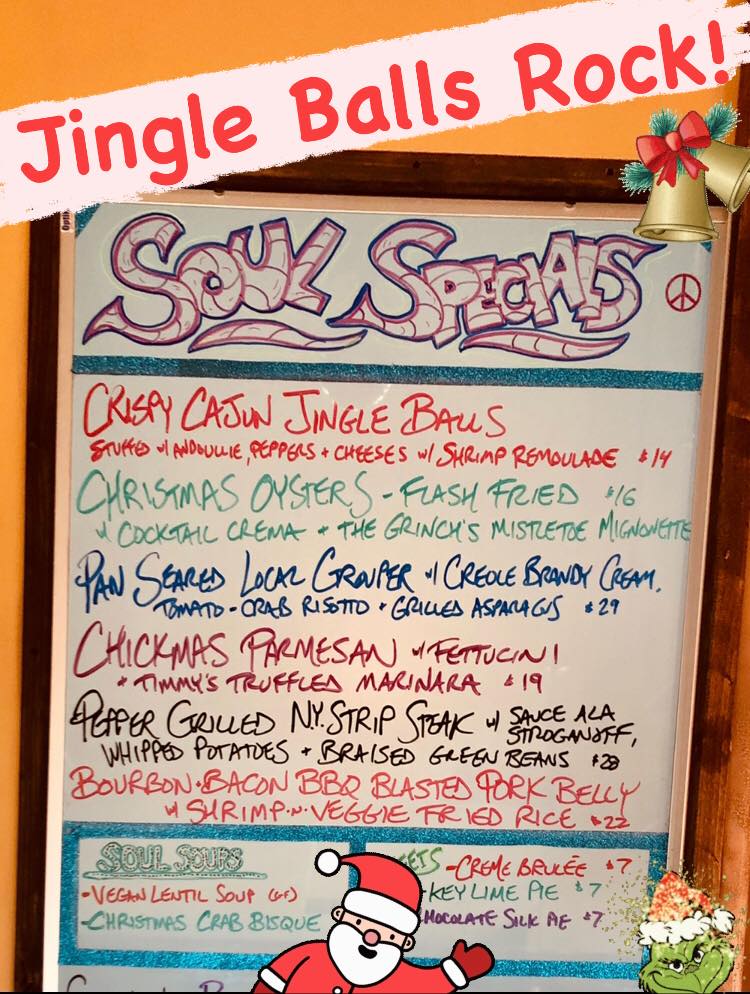 Jingle Balls Rock!
SOUL SPECIALS
CRISPY CAJUN JINGLE BALLS
STUFFED W/ ANDOULLIE, PEPPERS + CHEESES W/ SHRIMP REMOULADE $14
CHRISTMAS OYSTERS - FLASH FRIED $16
W/ COCKTAIL CREMA + THE GRINCH'S MISTLETOE MIGNONETTE
PAN SEARED LOCAL GROUPER W/ CREOLE BRANDY CREAM,
TOMATO-CRAB RISOTTO + GRILLED ASPARAGUS $29
CHICKMAS PARMESAN W/ FETTUCINI
+ TIMMY'S TRUFFLED MARINARA $19
PEPPER GRILLED N.Y. STRIP STEAK W/ SAUCE ALA
STROGANOFF,
WHIPPED POTATOES + BRAISED GREEN BEANS $28
BOURBON-BACON BBQ BLASTED PORK BELLY
W/ SHRIMP-N-VEGGIE FRIED RICE $22
SOUL SOUPS
-VEGAN LENTIL SOUP (GF)
-CHRISTMAS CRAB BISQUE
-CREME BRULÉE $7
KEY LIME PIE $7
SILK PIE $7